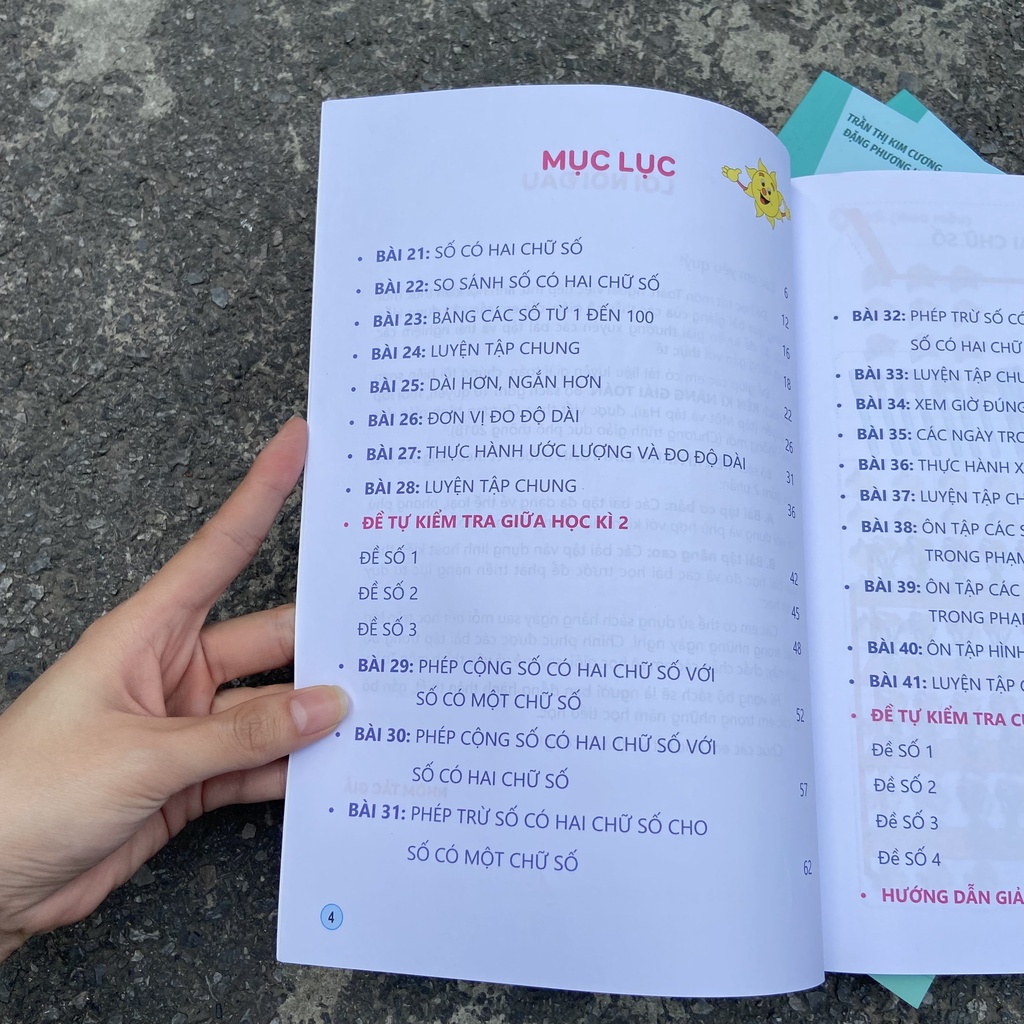 MỤC LỤC
• BÀI 21: SỐ CÓ HAI CHỮ SỐ 6
• BÀI 22: SO SÁNH SỐ CÓ HAI CHỮ SỐ 12
• BÀI 23: BẢNG CÁC SỐ TỪ 1 ĐẾN 100 16
• BÀI 24: LUYỆN TẬP CHUNG 18
• BÀI 25: DÀI HƠN, NGẮN HƠN 22
• BÀI 26: ĐƠN VỊ ĐO ĐỘ DÀI 26
• BÀI 27: THỰC HÀNH ƯỚC LƯỢNG VÀ ĐO ĐỘ DÀI 31
• BÀI 28: LUYỆN TẬP CHUNG 36
• ĐỀ TỰ KIỂM TRA GIỮA HỌC KÌ 2
ĐỀ SỐ 1 42
ĐỀ SỐ 2 45
ĐỀ SỐ 3 48
• BÀI 29: PHÉP CỘNG SỐ CÓ HAI CHỮ SỐ VỚI
SỐ CÓ MỘT CHỮ SỐ 52
• BÀI 30: PHÉP CỘNG SỐ CÓ HAI CHỮ SỐ VỚI
SỐ CÓ HAI CHỮ SỐ 57
• BÀI 31: PHÉP TRỪ SỐ CÓ HAI CHỮ SỐ CHO
SỐ CÓ MỘT CHỮ SỐ 62
4
TRẦN THỊ KIM CƯƠNG
ĐẶNG PHƯƠNG
• BÀI 32: PHÉP TRỪ SỐ CÓ
SỐ CÓ HAI CHỮ
• BÀI 33: LUYỆN TẬP
• BÀI 34: XEM GIỜ ĐÚNG
• BÀI 35: CÁC NGÀY
• BÀI 36: THỰC HÀNH
• BÀI 37: LUYỆN TẬP
• BÀI 38: ÔN TẬP CÁC
TRONG
• BÀI 39: ÔN TẬP CÁC
TRONG
• BÀI 40: ÔN TẬP HÌNH
• BÀI 41: LUYỆN TẬP
• ĐỀ TỰ KIỂM TRA
Đề SỐ 1
Đề SỐ 2
Đề SỐ 3
Đề SỐ 4
• HƯỚNG DẪN